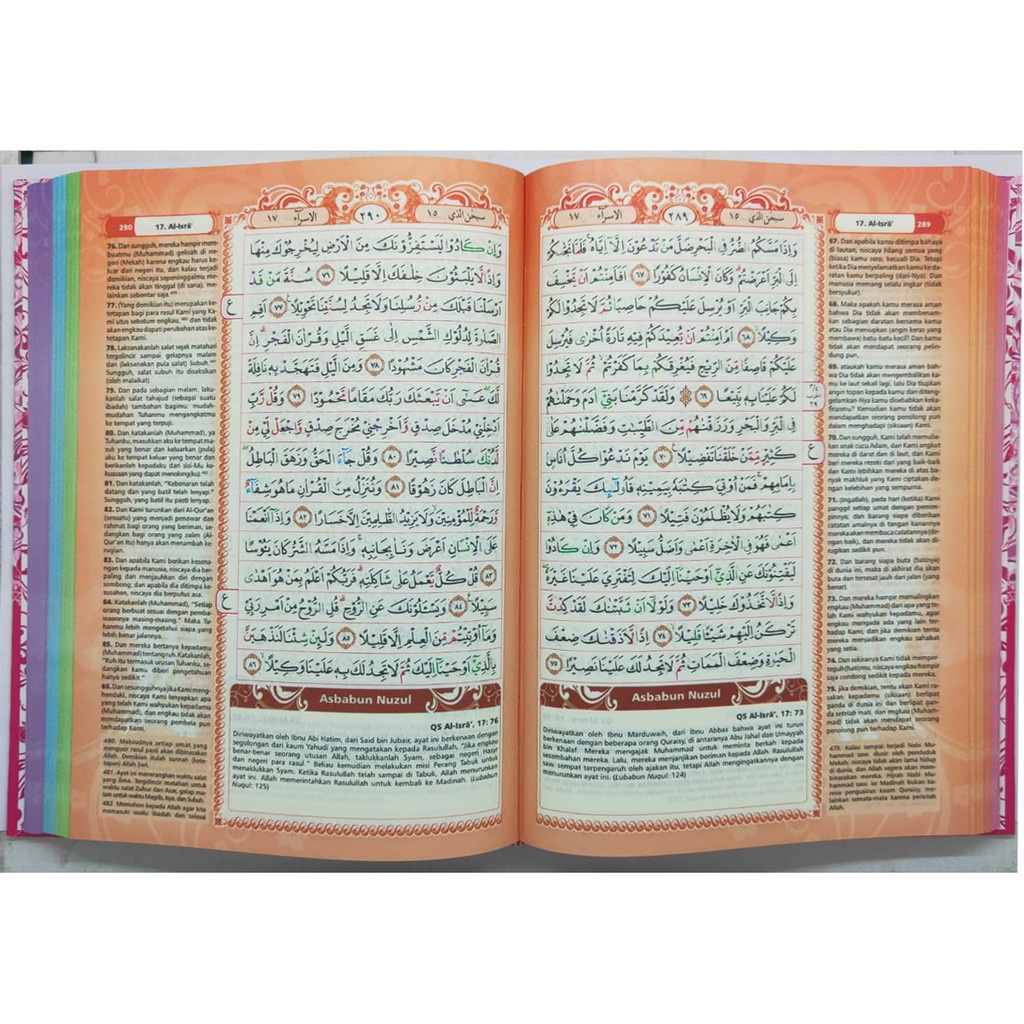 سبحن الذي ١٥
٢٨٩
الاسرآء ١٧
وَاِذَا مَسَّكُمُ الضُّرُّ فِى الْبَحْرِ ضَلَّ مَنْ تَدْعُوْنَ اِلَّآ اِيَّاهُۚ فَلَمَّا نَجّٰىكُمْ
اِلَى الْبَرِّ اَعْرَضْتُمْۗ وَكَانَ الْاِنْسَانُ كَفُوْرًا ٦٧ اَفَاَمِنْتُمْ اَنْ يَّخْسِفَ
بِكُمْ جَانِبَ الْبَرِّ اَوْ يُرْسِلَ عَلَيْكُمْ حَاصِبًا ثُمَّ لَا تَجِدُوْا لَكُمْ
وَكِيْلًا ۙ ٦٨ اَمْ اَمِنْتُمْ اَنْ يُّعِيْدَكُمْ فِيْهِ تَارَةً اُخْرٰى فَيُرْسِلَ
عَلَيْكُمْ قَاصِفًا مِّنَ الرِّيْحِ فَيُغْرِقَكُمْ بِمَا كَفَرْتُمْۙ ثُمَّ لَا تَجِدُوْا
لَكُمْ عَلَيْنَا بِهٖ تَبِيْعًا ٦٩ ۞ وَلَقَدْ كَرَّمْنَا بَنِيْٓ اٰدَمَ وَحَمَلْنٰهُمْ
فِى الْبَرِّ وَالْبَحْرِ وَرَزَقْنٰهُمْ مِّنَ الطَّيِّبٰتِ وَفَضَّلْنٰهُمْ عَلٰى
كَثِيْرٍ مِّمَّنْ خَلَقْنَا تَفْضِيْلًا ࣖ ٧٠ يَوْمَ نَدْعُوْا كُلَّ اُنَاسٍۢ
بِاِمَامِهِمْۚ فَمَنْ اُوْتِيَ كِتٰبَهٗ بِيَمِيْنِهٖ فَاُولٰۤىِٕكَ يَقْرَءُوْنَ
كِتٰبَهُمْ وَلَا يُظْلَمُوْنَ فَتِيْلًا ٧١ وَمَنْ كَانَ فِيْ هٰذِهٖٓ
اَعْمٰى فَهُوَ فِى الْاٰخِرَةِ اَعْمٰى وَاَضَلُّ سَبِيْلًا ٧٢ وَاِنْ كَادُوْا
لَيَفْتِنُوْنَكَ عَنِ الَّذِيْٓ اَوْحَيْنَآ اِلَيْكَ لِتَفْتَرِيَ عَلَيْنَا غَيْرَهٗۖ
وَاِذًا لَّاتَّخَذُوْكَ خَلِيْلًا ٧٣ وَلَوْلَآ اَنْ ثَبَّتْنٰكَ لَقَدْ كِدْتَّ
تَرْكَنُ اِلَيْهِمْ شَيْـًٔا قَلِيْلًا ۙ ٧٤ اِذًا لَّاَذَقْنٰكَ ضِعْفَ
الْحَيٰوةِ وَضِعْفَ الْمَمَاتِ ثُمَّ لَا تَجِدُ لَكَ عَلَيْنَا نَصِيْرًا ٧٥
ع
Asbabun Nuzul
QS Al-Isrā', 17: 73
Diriwayatkan oleh Ibnu Marduwaih, dari Ibnu Abbas bahwa ayat ini turun
berkenaan dengan beberapa orang Quraisy, di antaranya Abu Jahal dan Umayyah
bin Khalaf. Mereka mengajak Muhammad untuk meminta berkah kepada
sesembahan mereka. Lalu, mereka menjanjikan beriman kepada Allah. Rasulullah
saw. sempat terpengaruh oleh ajakan itu, tetapi Allah mengingatkannya dengan
menurunkan ayat ini. (Lubabun Nuqul: 124)
17. Al-Isrā' 289
67. Dan apabila kamu ditimpa bahaya
di lautan, niscaya hilang semua yang
(biasa) kamu seru, kecuali Dia. Tetapi
ketika Dia menyelamatkan kamu ke da-
ratan kamu berpaling (dari-Nya). Dan
manusia memang selalu ingkar (tidak
bersyukur).
68. Maka apakah kamu merasa aman
bahwa Dia tidak akan membenam-
kan sebagian daratan bersama kamu
atau Dia meniupkan (angin keras yang
membawa) batu-batu kecil? Dan kamu
tidak akan mendapat seorang pelin-
dung pun,
69. ataukah kamu merasa aman bah-
wa Dia tidak akan mengembalikan ka-
mu ke laut sekali lagi, lalu Dia tiupkan
angin topan kepada kamu dan diteng-
gelamkan-Nya kamu disebabkan keka-
firanmu? Kemudian kamu tidak akan
mendapatkan seorang penolong pun
dalam menghadapi (siksaan) Kami.
70. Dan sungguh, Kami telah memulia-
kan anak cucu Adam, dan Kami angkut
mereka di darat dan di laut, dan Kami
beri mereka rezeki dari yang baik-baik
dan Kami lebihkan mereka di atas ba-
nyak makhluk yang Kami ciptakan de-
ngan kelebihan yang sempurna.
71. (Ingatlah), pada hari (ketika) Kami
panggil setiap umat dengan pemim-
pinnya; dan barang siapa diberikan
catatan amalnya di tangan kanannya
mereka akan membaca catatannya (de-
ngan baik), dan mereka tidak akan di-
rugikan sedikit pun.
72. Dan barang siapa buta (hatinya)
di dunia ini, maka di akhirat dia akan
buta dan tersesat jauh dari jalan (yang
benar).
73. Dan mereka hampir memalingkan
engkau (Muhammad) dari apa yang te-
lah Kami wahyukan kepadamu, agar
engkau mengada ada yang lain ter-
hadap Kami; dan jika demikian tentu
mereka menjadikan engkau sahabat
yang setia.
74. Dan sekiranya Kami tidak memper-
teguh (hati)mu, niscaya engkau hampir
saja condong sedikit kepada mereka,
75. jika demikian, tentu akan Kami ra-
sakan kepadamu (siksaan) berlipat
ganda di dunia ini dan berlipat gan-
da setelah mati, dan engkau (Muham-
mad) tidak akan mendapat seorang
penolong pun terhadap Kami.
479. Kalau sampai terjadi Nabi Mu-
hammad saw. diusir oleh penduduk
Mekah, niscaya mereka tidak akan lama hidup
di dunia, dan Allah segera akan mem-
binasakan mereka. Hijrah Nabi Mu-
hammad saw. ke Madinah bukan ka-
rena pengusiran kaum Quraisy, me-
lainkan semata-mata karena perintah
Allah.
سبحن الذي ١٥
٢٩٠
الاسرآء ١٧
وَاِنْ كَادُوْا لَيَسْتَفِزُّوْنَكَ مِنَ الْاَرْضِ لِيُخْرِجُوْكَ مِنْهَا
وَاِذًا لَّا يَلْبَثُوْنَ خِلٰفَكَ اِلَّا قَلِيْلًا ٧٦ سُنَّةَ مَنْ قَدْ
اَرْسَلْنَا قَبْلَكَ مِنْ رُّسُلِنَا وَلَا تَجِدُ لِسُنَّتِنَا تَحْوِيْلًا ࣖ ٧٧ اَقِمِ
الصَّلٰوةَ لِدُلُوْكِ الشَّمْسِ اِلٰى غَسَقِ الَّيْلِ وَقُرْاٰنَ الْفَجْرِۗ اِنَّ
قُرْاٰنَ الْفَجْرِ كَانَ مَشْهُوْدًا ٧٨ وَمِنَ الَّيْلِ فَتَهَجَّدْ بِهٖ نَافِلَةً
لَّكَۖ عَسٰٓى اَنْ يَّبْعَثَكَ رَبُّكَ مَقَامًا مَّحْمُوْدًا ٧٩ وَقُلْ رَّبِّ
اَدْخِلْنِيْ مُدْخَلَ صِدْقٍ وَّاَخْرِجْنِيْ مُخْرَجَ صِدْقٍ وَّاجْعَلْ لِّيْ مِنْ
لَّدُنْكَ سُلْطٰنًا نَّصِيْرًا ٨٠ وَقُلْ جَاۤءَ الْحَقُّ وَزَهَقَ الْبَاطِلُۖ
اِنَّ الْبَاطِلَ كَانَ زَهُوْقًا ٨١ وَنُنَزِّلُ مِنَ الْقُرْاٰنِ مَا هُوَ شِفَاۤءٌ
وَّرَحْمَةٌ لِّلْمُؤْمِنِيْنَۙ وَلَا يَزِيْدُ الظّٰلِمِيْنَ اِلَّا خَسَارًا ٨٢ وَاِذَآ اَنْعَمْنَا
عَلَى الْاِنْسَانِ اَعْرَضَ وَنَاٰ بِجَانِبِهٖۚ وَاِذَا مَسَّهُ الشَّرُّ كَانَ يَـُٔوْسًا
٨٣ قُلْ كُلٌّ يَّعْمَلُ عَلٰى شَاكِلَتِهٖۗ فَرَبُّكُمْ اَعْلَمُ بِمَنْ هُوَ اَهْدٰى
سَبِيْلًا ࣖ ٨٤ وَيَسْـَٔلُوْنَكَ عَنِ الرُّوْحِۗ قُلِ الرُّوْحُ مِنْ اَمْرِ رَبِّيْ
وَمَآ اُوْتِيْتُمْ مِّنَ الْعِلْمِ اِلَّا قَلِيْلًا ٨٥ وَلَىِٕنْ شِئْنَا لَنَذْهَبَنَّ
بِالَّذِيْٓ اَوْحَيْنَآ اِلَيْكَ ثُمَّ لَا تَجِدُ لَكَ بِهٖ عَلَيْنَا وَكِيْلًا ۙ ٨٦
ع
ع
Asbabun Nuzul
QS Al-Isrā', 17: 76
Diriwayatkan oleh Ibnu Abi Hatim, dari Said bin Jubair, ayat ini berkenaan dengan
segolongan dari kaum Yahudi yang mengatakan kepada Rasulullah, "Jika engkau
benar-benar seorang utusan Allah, taklukkanlah Syam, sebagai negeri Mahsyar
dan negeri para rasul." Beliau kemudian melakukan misi Perang Tabuk untuk
menaklukkan Syam. Ketika Rasulullah telah sampai di Tabuk, Allah menurunkan
ayat ini. Allah memerintahkan Rasulullah untuk kembali ke Madinah. (Lubabun
Nuqul: 125)
290 17. Al-Isrā'
76. Dan sungguh, mereka hampir mem-
buatmu (Muhammad) gelisah di ne-
geri (Mekah) karena engkau harus ke-
luar dari negeri itu, dan kalau terjadi
demikian, niscaya sepeninggalmu me-
reka tidak akan tinggal (di sana), me-
lainkan sebentar saja.
77. (Yang demikian itu) merupakan ke-
tetapan bagi para rasul Kami yang Ka-
mi utus sebelum engkau, dan tidak
akan engkau dapati perubahan atas ke-
tetapan Kami.
78. Laksanakanlah salat sejak matahari
tergelincir sampai gelapnya malam
dan (laksanakan pula salat) Subuh.
Sungguh, salat subuh itu disaksikan
(oleh malaikat)
79. Dan pada sebagian malam, laku-
kanlah salat tahajud (sebagai suatu
ibadah) tambahan bagimu: mudah-
mudahan Tuhanmu mengangkatmu
ke tempat yang terpuji.
80. Dan katakanlah (Muhammad), ya
Tuhanku, masukkan aku ke tempat ma-
suk yang benar dan keluarkan (pula)
aku ke tempat keluar yang benar dan
berikanlah kepadaku dari sisi-Mu ke-
kuasaan yang dapat menolong(ku).
81. Dan katakanlah, "Kebenaran telah
datang dan yang batil telah lenyap."
Sungguh, yang batil itu pasti lenyap.
82. Dan Kami turunkan dari Al-Qur'an
(sesuatu) yang menjadi penawar dan
rahmat bagi orang yang beriman, se-
dangkan bagi orang yang zalim (Al-
Qur'an itu) hanya akan menambah ke-
rugian.
83. Dan apabila Kami berikan kesena-
ngan kepada manusia, niscaya dia ber-
paling dan menjauhkan diri dengan
sombong; dan apabila dia ditimpa ke-
susahan, niscaya dia berputus asa
84. Katakanlah (Muhammad), "Setiap
orang berbuat sesuai dengan pemba-
waannya masing-masing." Maka Tu-
hanmu lebih mengetahui siapa yang
lebih benar jalannya.
85. Dan mereka bertanya kepadamu
(Muhammad) tentang ruh. Katakanlah,
"Ruh itu termasuk urusan Tuhanku, se-
dang kamu diberi pengetahuan
hanya sedikit."
86. Dan sesungguhnya jika Kami meng-
hendaki, niscaya Kami lenyapkan apa
yang telah Kami wahyukan kepadamu
(Muhammad), dan engkau tidak akan
mendapatkan seorang pembela pun
terhadap Kami.
480. Maksudnya setiap umat yang
mengusir rasul pasti akan dibinasakan
Allah. Demikian itulah sunnah (kete-
tapan) Allah Swt.
481. Ayat ini menerangkan waktu salat
yang lima. Tergelincir matahari untuk
waktu salat Zuhur dan Asar, gelap ma-
lam untuk waktu Magrib, Isya, dan Subuh.
482. Memohon kepada Allah agar kita
memasuki suatu ibadah dan selesai